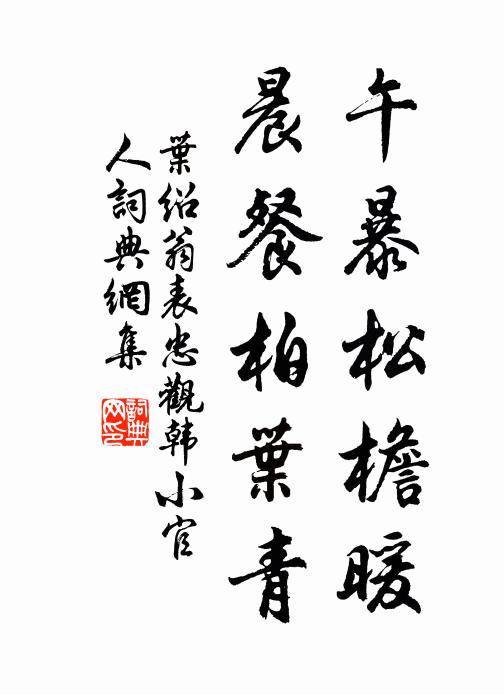 午暴松檐暖
晨餐柏葉青
葉紹翁表忠觀韓小官
人詞典網集
詞典
网印